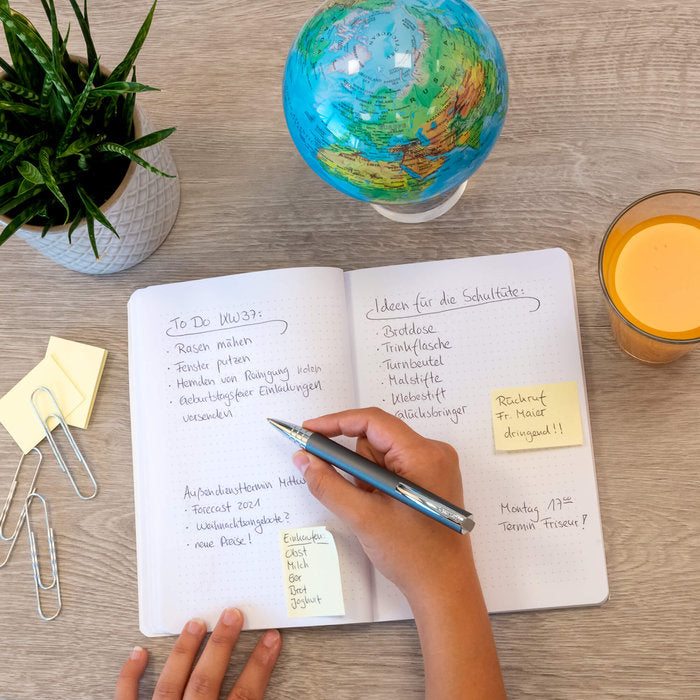 To Do KW37:
· Rasen mähen
· Fenster putzen
· Hemden von Reinigung holen
· Geburtstagsfeier Einladungen
versenden
Außendiensttermin
· Forecast 2021
· Weihnachtsangebote?
· neue Preise!
Einkaufen:
Obst
Milch
Eier
Brot
Joghurt
Ideen für die Schultüte:
· Brotdose
· Trinkflasche
· Turnbeutel
· Malstifte
· Klebestift
Glücksbringer
Rückruf
Fr. Maier
dringend!!
Montag 17⁰⁰
Termin Friseur!